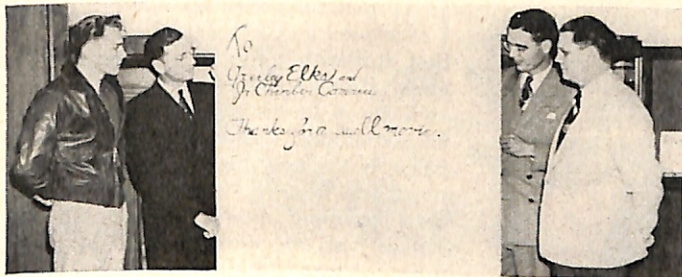 To
Greeley Elks and
Jr Chamber Commerce
Thanks for a swell movie.